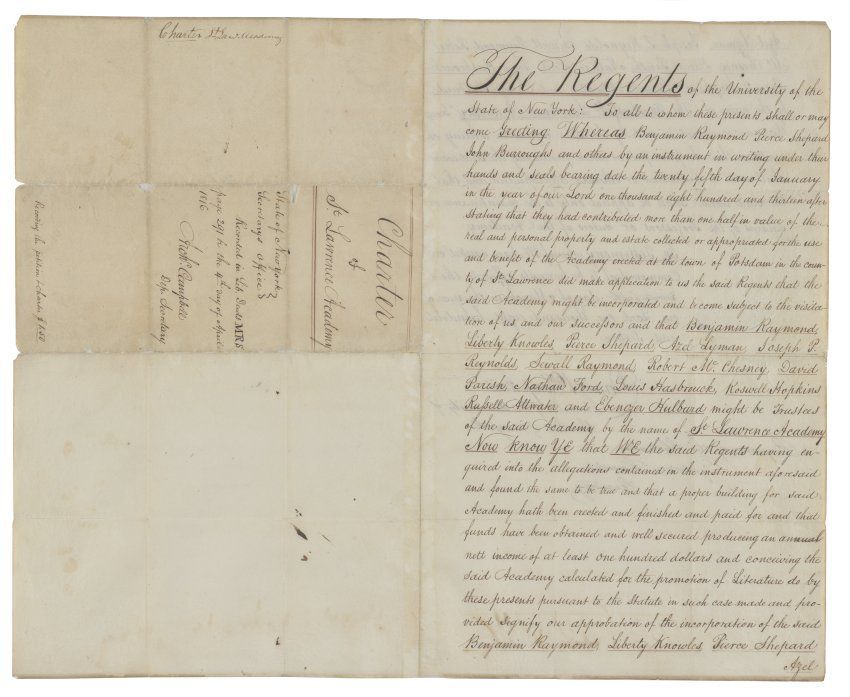 Charter St. Law. Academy
Charter
of
St Lawrence Academy
State of New York
Secretary's Office
Recorded in Lib Deeds MRS
page 291 &c the 4th day of April
1816
Archd Campbell
Dep. Secretary
Recording the petition & charter $1.50
The Regents of the University of the
State of New York: To all to whom these presents shall or may
come Greeting Whereas Benjamin Raymond Pierce Shepard
John Burroughs and others by an instrument in writing under their
hands and seals bearing date the twenty fifth day of January
in the year of our Lord one thousand eight hundred and thirteen after
stating that they had contributed more than one half in value of the
real and personal property and estate collected or appropriated for the use
and benefit of the Academy erected at the town of Potsdam in the coun-
ty of St Lawrence did make application to us the said Regents that the
said Academy might be incorporated and become subject to the visita-
tion of us and our successors and that Benjamin Raymond,
Liberty Knowles, Pierce Shepard, Azel Lyman, Joseph P.
Reynolds, Sewall Raymond, Robert Mc Chesney, David
Parish, Nathan Ford, Louis Hasbrouck, Roswell Hopkins
Russell Attwater and Ebenezer Hulburd might be Trustees
of the said Academy by the name of St Lawrence Academy
Now Know YE that WE the said Regents having en-
quired into the allegations contained in the instrument aforesaid
and found the same to be true and that a proper building for said
Academy hath been erected and finished and paid for and that
funds have been obtained and well secured producing an annual
nett income of at least one hundred dollars and conceiving the
said Academy calculated for the promotion of Literature do by
these presents pursuant to the Statute in such case made and pro-
vided signify our approbation of the incorporation of the said
Benjamin Raymond, Liberty Knowles Pierce Shepard
Azel